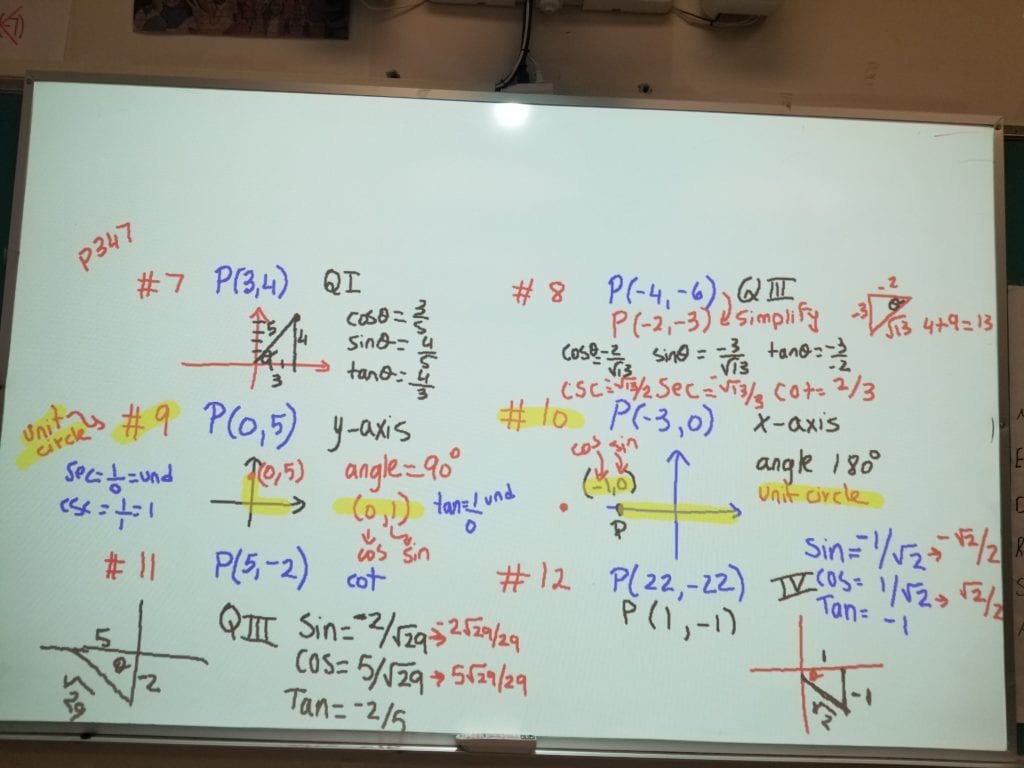 p347
#7 P(3,4) QI
cosθ = 3/5
sinθ = 4/5
tanθ = 4/3
5
4
3
#8 P(-4,-6) QIII
P(-2,-3) Simplify
-2
-3
θ
√13
4+9=13
cosθ = -2/√13 sinθ = -3/√13 tanθ = -3/-2
csc = -√13/2 sec = -√13/3 cot = 2/3
unit circle
#9 P(0,5) y-axis
sec = 1/0 = und
csc = 1/1 = 1
(0,5)
angle = 90°
(0,1) tan = 1/0 und
cos sin
cot
#10 P(-3,0) x-axis
cos sin
(-1,0)
P
angle 180°
unit circle
#11 P(5,-2)
QIII
Sin = -2/√29 → -2√29/29
cos = 5/√29 → 5√29/29
Tan = -2/5
5
θ
-2
√29
#12 P(22,-22) IV
P(1,-1)
Sin = -1/√2 → -√2/2
cos = 1/√2 → √2/2
Tan = -1
1
θ
-1
√2